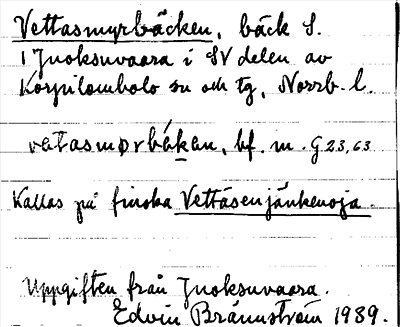 Vettasmyrbäcken, bäck S.
i Juoksuvaara i SV delen av
Korpilombolo sn och tg, Norrb. l.
vetasmørbäkən, bf. m. G 23,63
Kallas på finska Vettäsenjänkenoja.
Uppgiften från Juoksuvaara.
Edvin Brännström 1939.